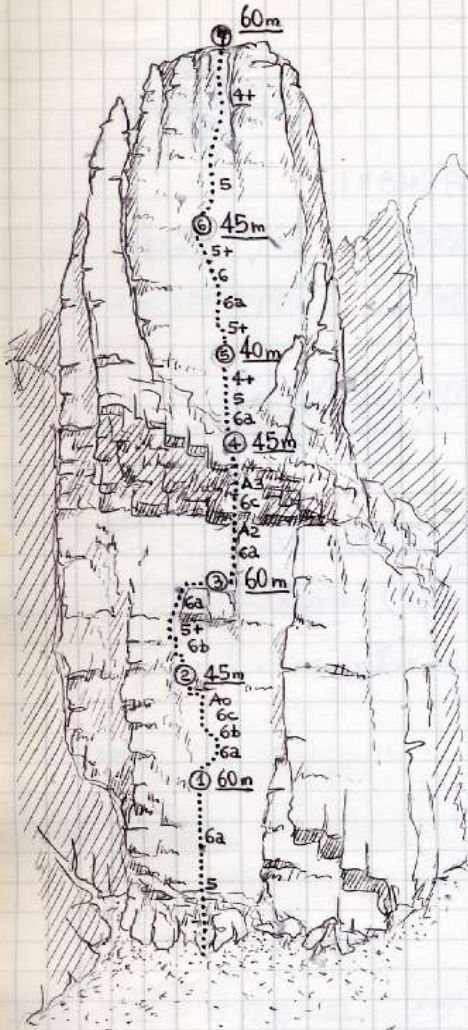 7 60m
4+
5
6 45m
5+
6
6a
5+
5 40m
4+
5
6a
4 45m
A3
6c
A2
6a
3 60m
6a
5+
6b
2 45m
A0
6c
6b
6a
1 60m
6a
5